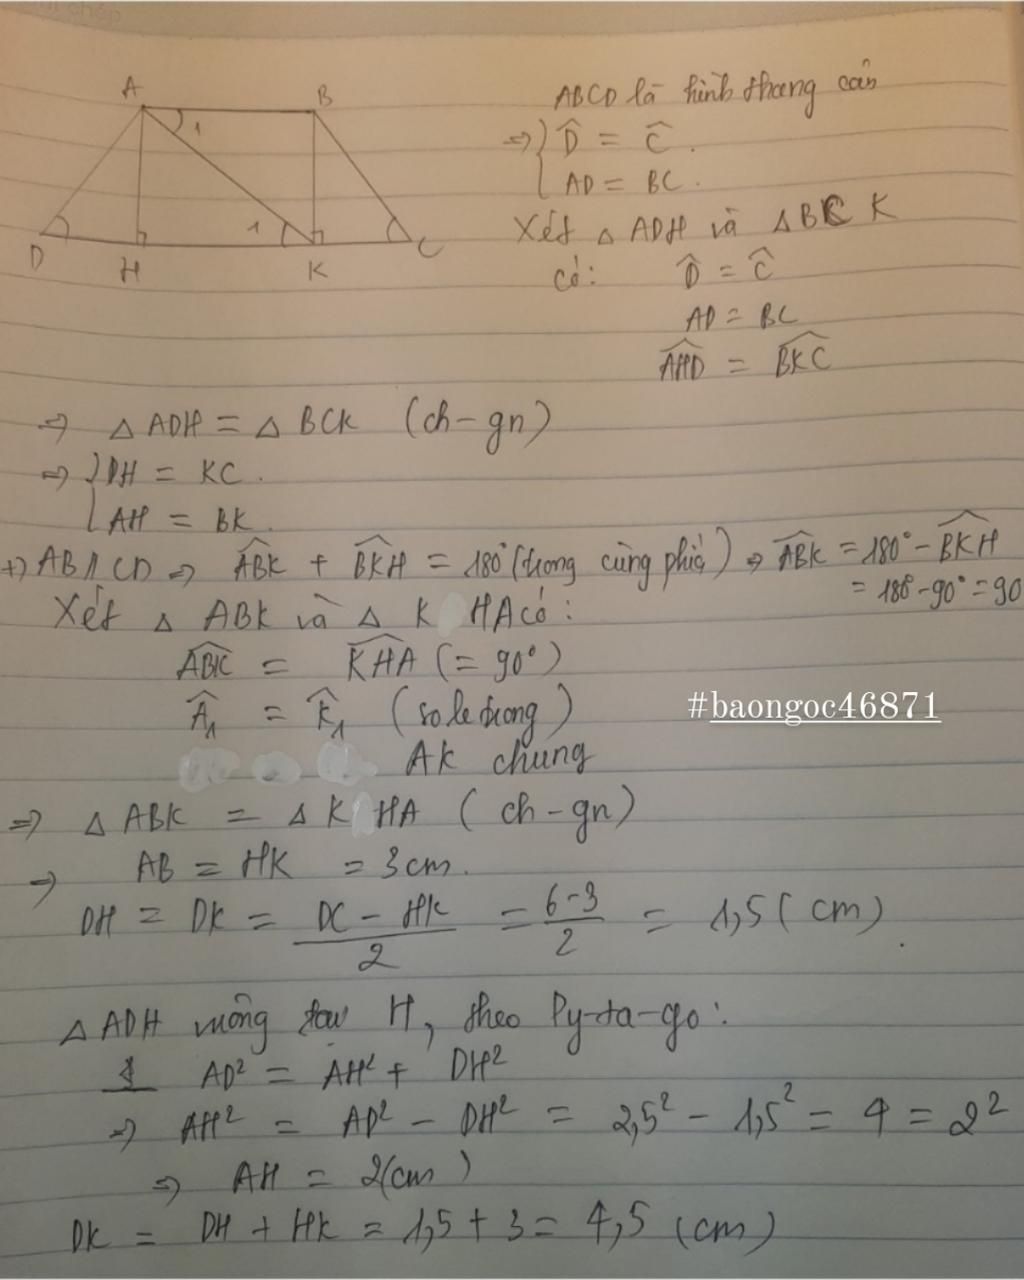 A B
1
1
D H K C
ABCD là hình thang cân
=> { D̂ = Ĉ.
AD = BC.
Xét △ ADH và △BCK
có: D̂ = Ĉ
AD = BC
∠AHD = ∠BKC
=> △ ADH = △ BCK (ch-gn)
=> { DH = KC.
AH = BK.
+) AB // CD => ∠ABK + ∠BKH = 180° (trong cùng phía) => ∠ABK = 180° - ∠BKH
= 180° - 90° = 90
Xét △ ABK và △ K HA có:
∠ABK = ∠KHA (= 90°)
Â₁ = K̂₁ (so le trong)
#baongoc46871
AK chung
=> △ ABK = △ K HA (ch-gn)
=> AB = HK = 3cm.
DH = DK = (DC - HK)/2 = (6-3)/2 = 1,5 (cm).
△ ADH vuông tại H, theo Py-ta-go:
AD² = AH² + DH²
=> AH² = AD² - DH² = 2,5² - 1,5² = 4 = 2²
=> AH = 2(cm)
DK = DH + HK = 1,5 + 3 = 4,5 (cm)